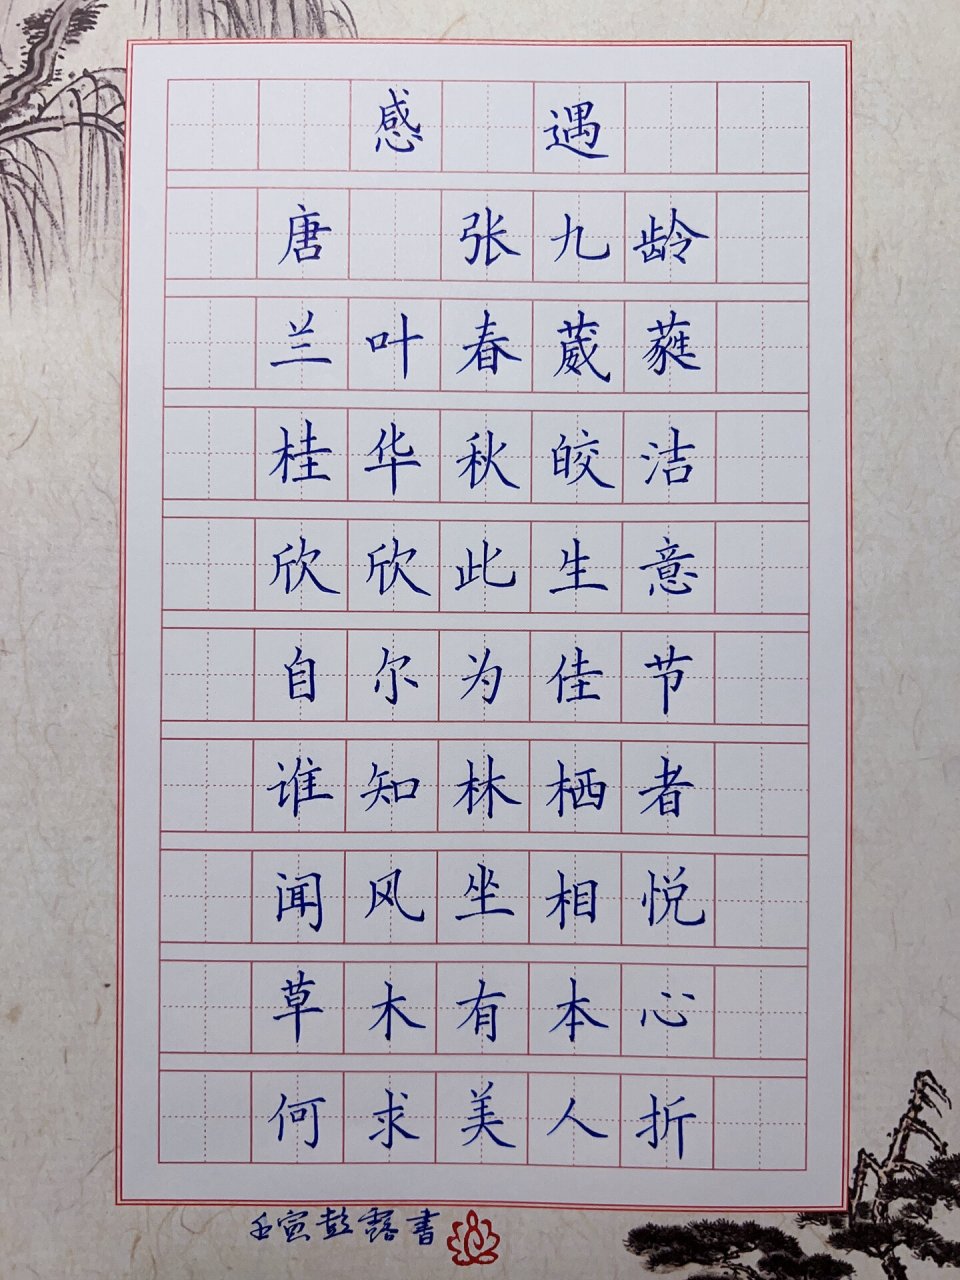 感遇
唐 张九龄
兰叶春葳蕤
桂华秋皎洁
欣欣此生意
自尔为佳节
谁知林栖者
闻风坐相悦
草木有本心
何求美人折
壬寅彭露書